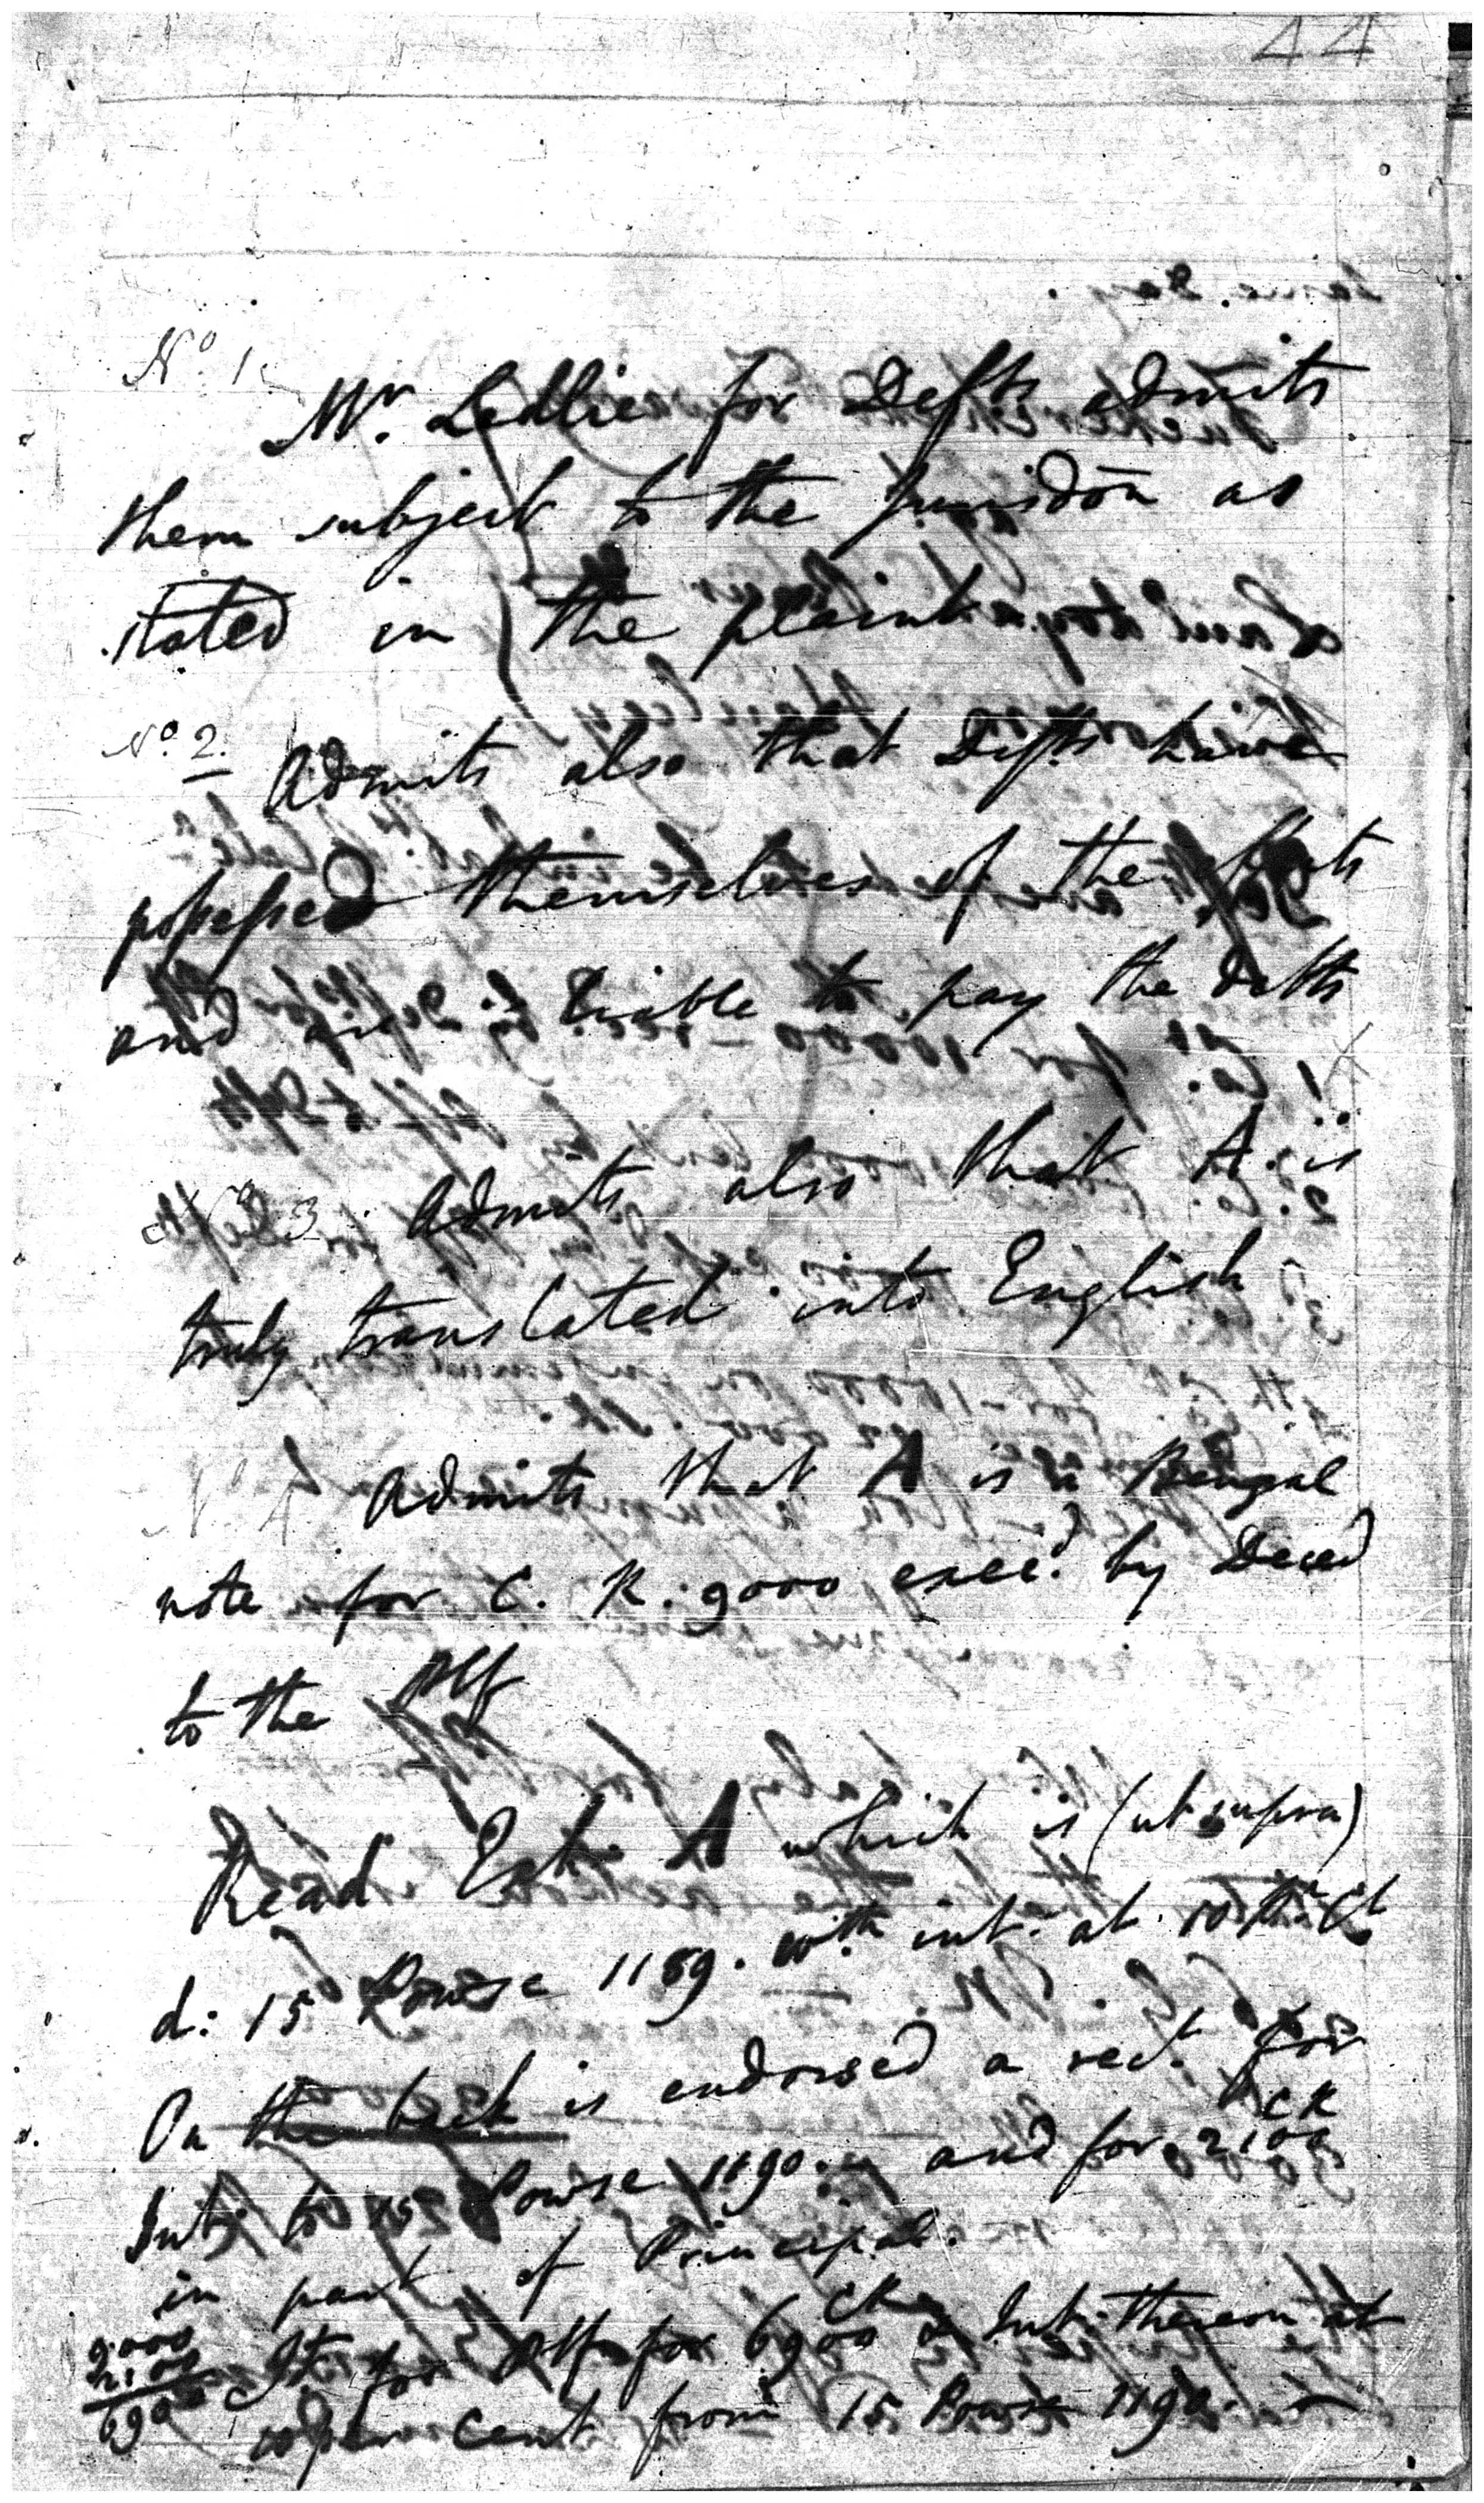 44
No. 1.
Mr. Ledlie for Defts admits
them subject to the Jurisdon as
stated in the plaint
No. 2.
Admits also that Defts have
possessed themselves of the effects
and are liable to pay the debts
No. 3. Admits also that A. is
truly translated into English
No. 4. Admits that A is a Bengal
note for C. R. 9000 exec.d by Deced
to the Plf
Read Exh. A which is (ut supra)
d: 15 Powse 1189. with int. at 10 P. Ct
On the back is endorsed a rect. for
Int. to 15 Powse 1190. and for CR 2100
in part of Principal.
9000
2100
6900
Jt for Plf for CR 6900 & Int. thereon at
10 per cent from 15 Powse 1190.